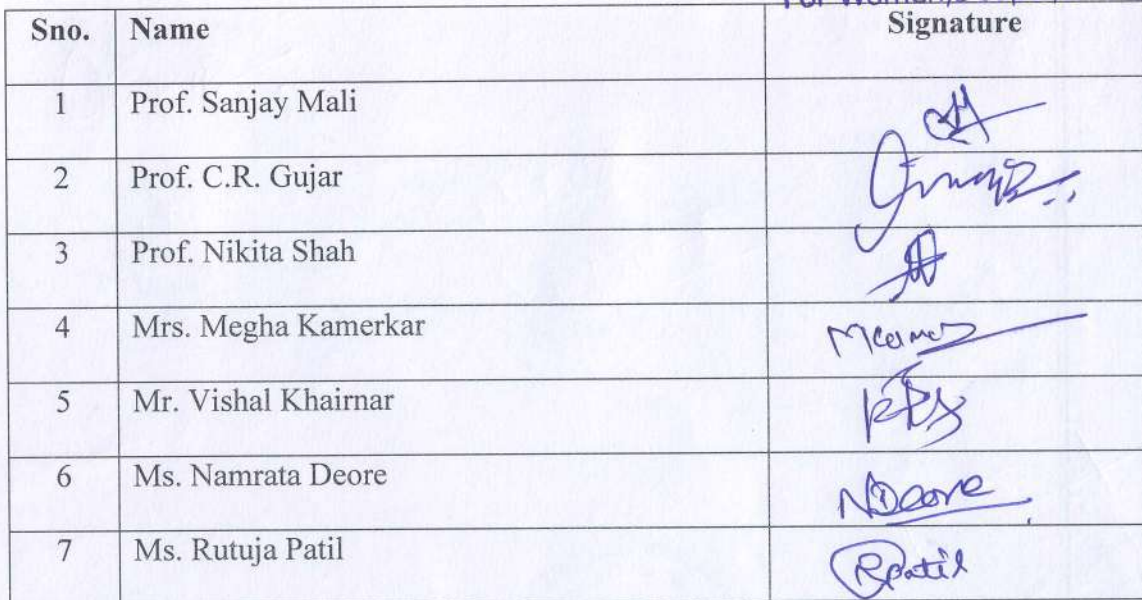 For Woman,s
Sno. Name Signature
1 Prof. Sanjay Mali
2 Prof. C.R. Gujar
3 Prof. Nikita Shah
4 Mrs. Megha Kamerkar
5 Mr. Vishal Khairnar
6 Ms. Namrata Deore NDeore
7 Ms. Rutuja Patil RPatil